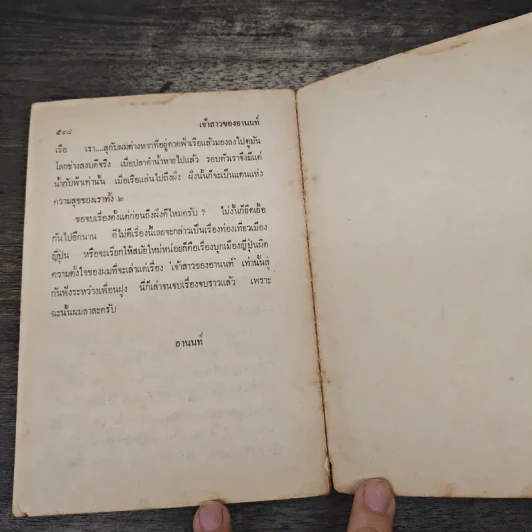 ๕๙๘ เจ้าสาวของอานนท์
เรือ เรา....สุกับผมต่างหากที่อยู่ดาดฟ้าเรือแล้วมองลงไปดูมัน
โลกช่างสงบดีจริง เมื่อปลาดำน้ำหายไปแล้ว รอบตัวเราจึงมีแต่
น้ำกับฟ้าเท่านั้น เมื่อเรือแล่นไปถึงฝั่ง ฝั่งนั้นก็จะเป็นแดนแห่ง
ความสุขของเราทั้ง ๒
ขอจบเรื่องตั้งแต่ก่อนถึงฝั่งดีไหมครับ ? ไม่งั้นก็ยืดเยื้อ
กันไปอีกนาน ดีไม่ดีเรื่องนี้เลยจะกล่าวเป็นเรื่องท่องเที่ยวเมือง
ญี่ปุ่น หรือจะเรียกให้สมัยใหม่หน่อยก็คือเรื่องบุกเมืองญี่ปุ่นผิด
ความตั้งใจของผมที่จะเล่าแต่เรื่อง "เจ้าสาวของอานนท์" เท่านั้นสู่
กันฟังระหว่างเพื่อนฝูง นี่ก็เล่าจนจบเรื่องจบราวแล้ว เพราะ
ฉะนั้นผมลาละครับ
อานนท์